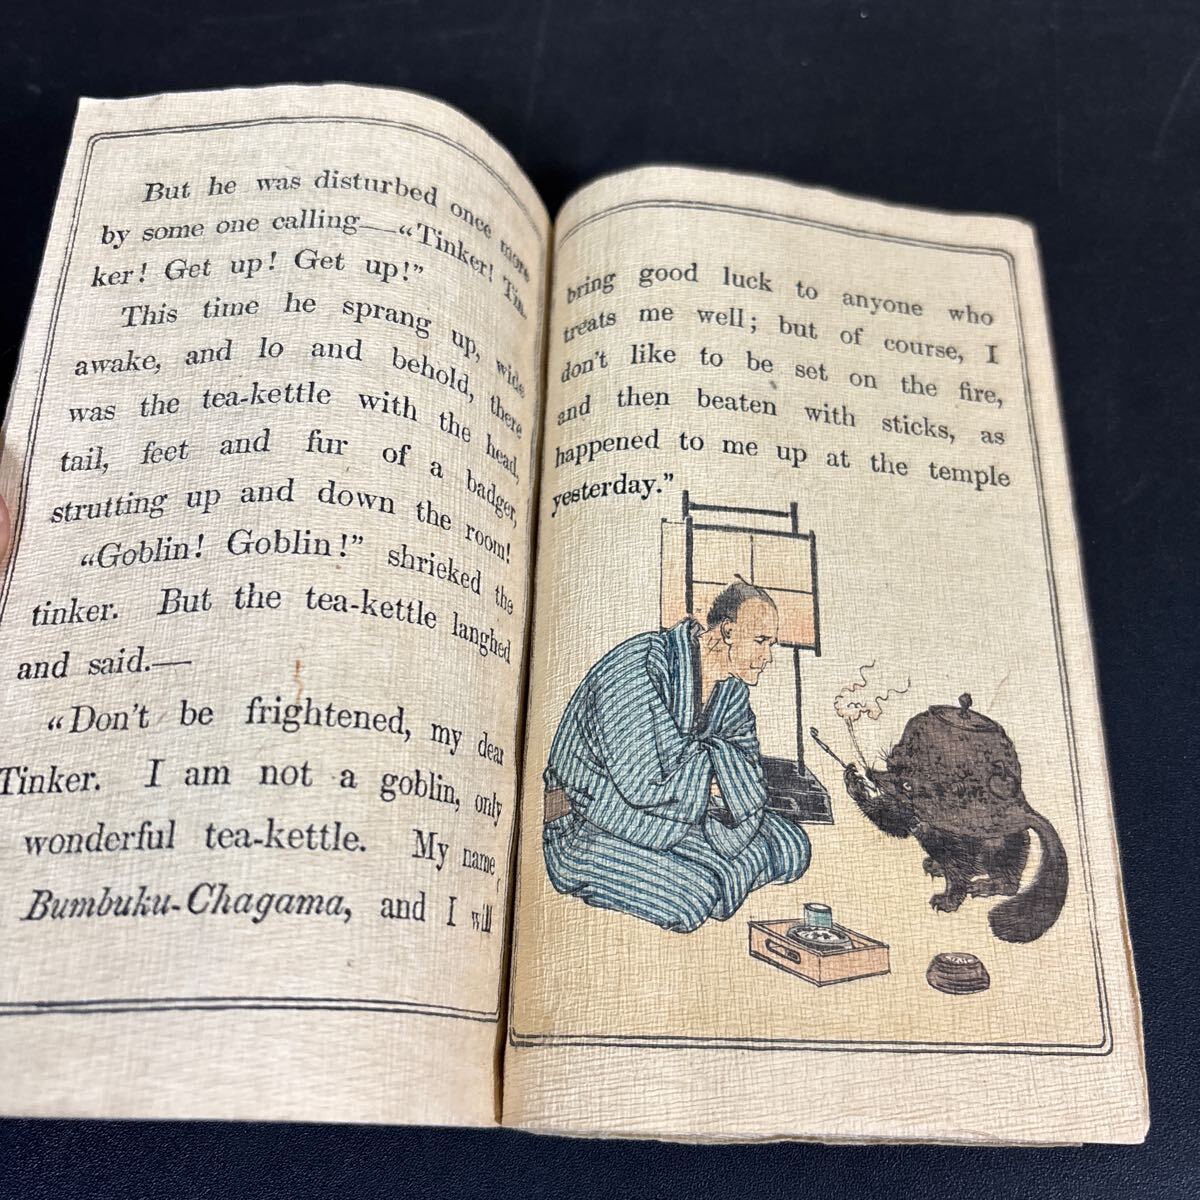 But he was disturbed once more
by some one calling—“Tinker! Tin-
ker! Get up! Get up!”
This time he sprang up, wide
awake, and lo and behold, there
was the tea-kettle with the head,
tail, feet and fur of a badger,
strutting up and down the room!
“Goblin! Goblin!” shrieked the
tinker. But the tea-kettle laughed
and said.—
“Don't be frightened, my dear
Tinker. I am not a goblin, only
wonderful tea-kettle. My name,
Bumbuku-Chagama, and I will
bring good luck to anyone who
treats me well; but of course, I
don't like to be set on the fire,
and then beaten with sticks, as
happened to me up at the temple
yesterday.”